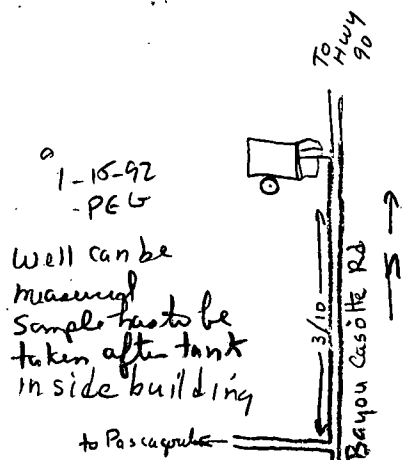 To
Hwy
90
1-15-92
- PEG
Well can be
measured
Sample has to be
taken after tank
inside building
3/10
Bayou Casotte Rd
N
to Pascagoula